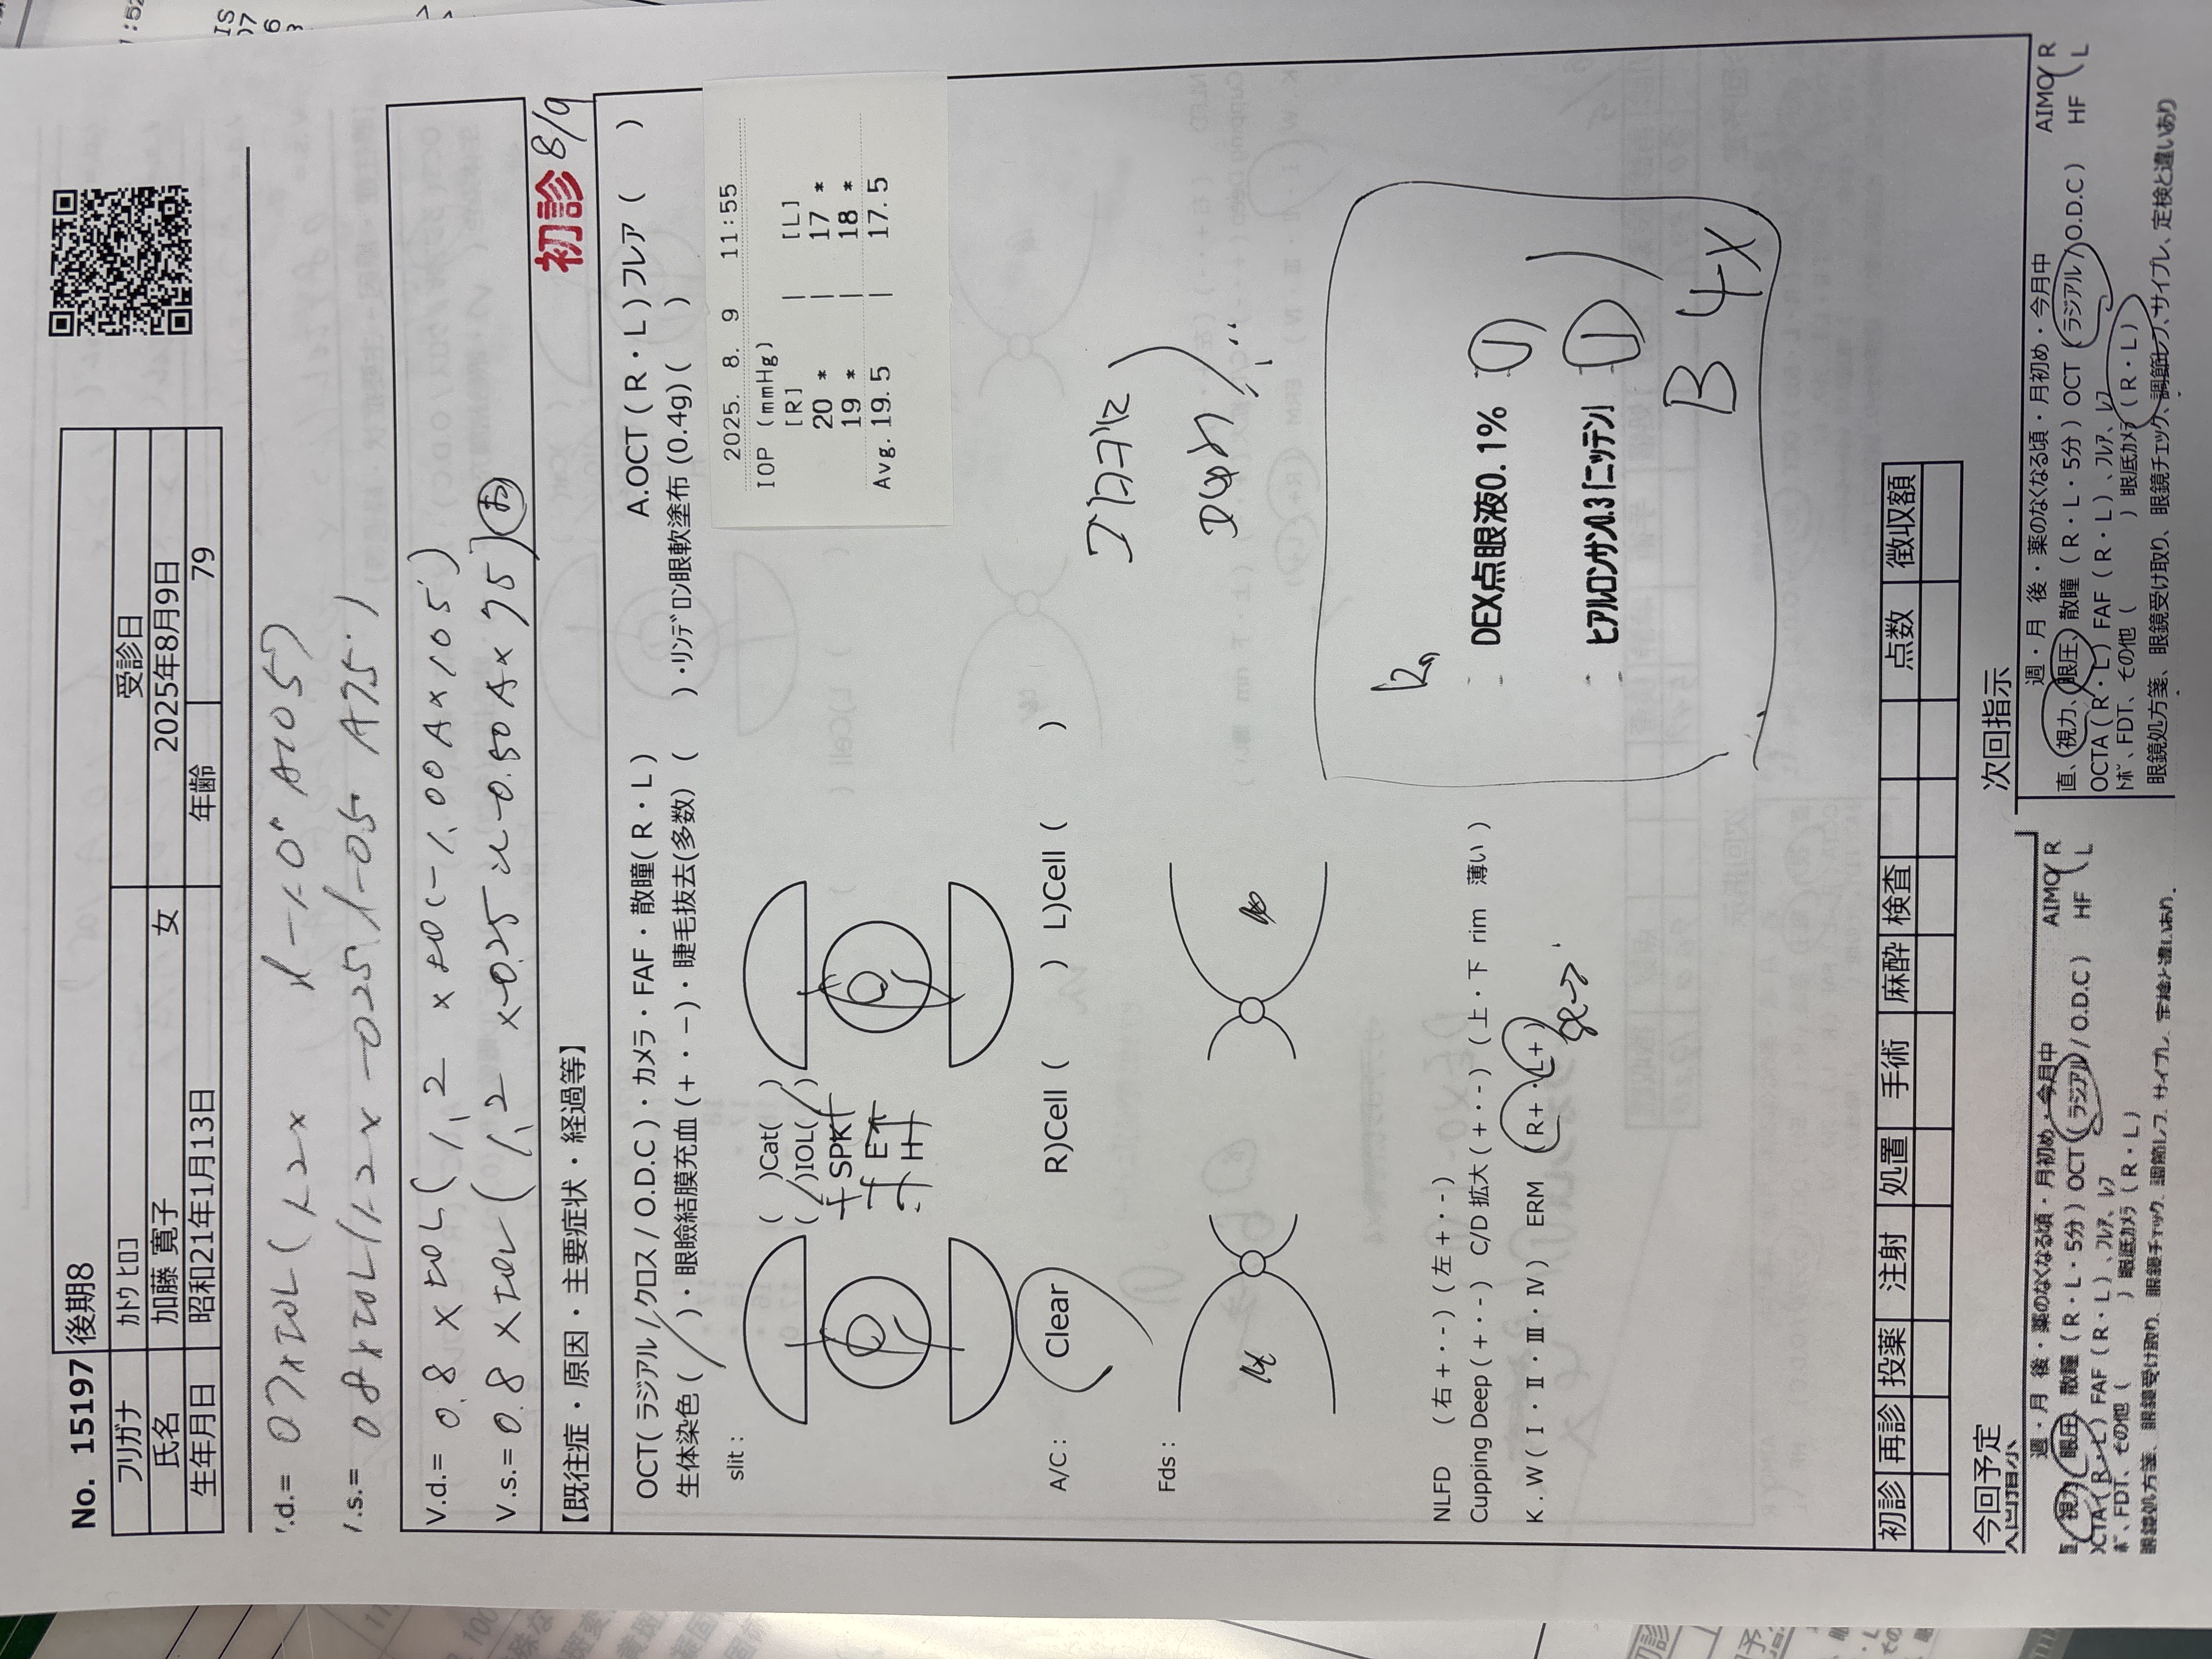 No. 15197 後期8
フリガナ カトウ ヒロコ 受診日
氏名 加藤 寛子 女 2025年8月9日
生年月日 昭和21年1月13日 年齢 79
.d.= 07×IOL(1.2× -1.0 A105)
.s.= 08×IOL(1.2× -025 -05 A75)
V.d.= 0.8 × IOL(1.2 × -1.00 A×105)
V.s.= 0.8 × IOL(1.2 ×-0.25 -0.50 A×75)
初診 8/9
【既往症・原因・主要症状・経過等】
OCT( ラジアル / クロス / O.D.C )・カメラ・FAF・散瞳( R・L ) A.OCT ( R・L ) フレア ( )
生体染色 ( )・眼瞼結膜充血 (+・−)・睫毛抜去(多数) ( )・リンデロン眼軟塗布 (0.4g) ( )
slit :
( )Cat( )
( )IOL( )
+ SPK +
E
H
2025. 8. 9 11:55
IOP (mmHg)
[R] | [L]
20 * | 17 *
19 * | 18 *
Avg. 19.5 | 17.5
A/C : Clear R)Cell ( ) L)Cell ( )
Fds :
NLFD (右 +・-) (左 +・-)
Cupping Deep (+・-) C/D 拡大 (+・-) (上・下 rim 薄い )
K . W ( Ⅰ・Ⅱ・Ⅲ・Ⅳ ) ERM ( R+・L+ )
DEX点眼液0.1% ①
ヒアルロンサン0.3「ニッテン」 ①
B 4×
初診 再診 投薬 注射 処置 手術 麻酔 検査 点数 徴収額
今回予定
次回指示
週・月 後・薬のなくなる頃・月初め・今月中 AIMO R
直、視力、眼圧、散瞳 (R・L・5分) OCT (ラジアル / O.D.C ) HF L
OCTA (R・L) FAF (R・L) 、フレア、レフ
ﾎﾞ、FDT、その他 ( ) 眼底カメラ (R・L)
眼鏡処方箋、眼鏡受け取り、眼鏡チェック、調節レフ、サイプレ、定検と違いあり
次回指示
週・月 後・薬のなくなる頃・月初め・今月中 AIMO R
直、視力、眼圧、散瞳 (R・L・5分) OCT (ラジアル / O.D.C ) HF L
OCTA (R・L) FAF (R・L) 、フレア、レフ
トポ、FDT、その他 ( ) 眼底カメラ (R・L)
眼鏡処方箋、眼鏡受け取り、眼鏡チェック、調節レフ、サイプレ、定検と違いあり